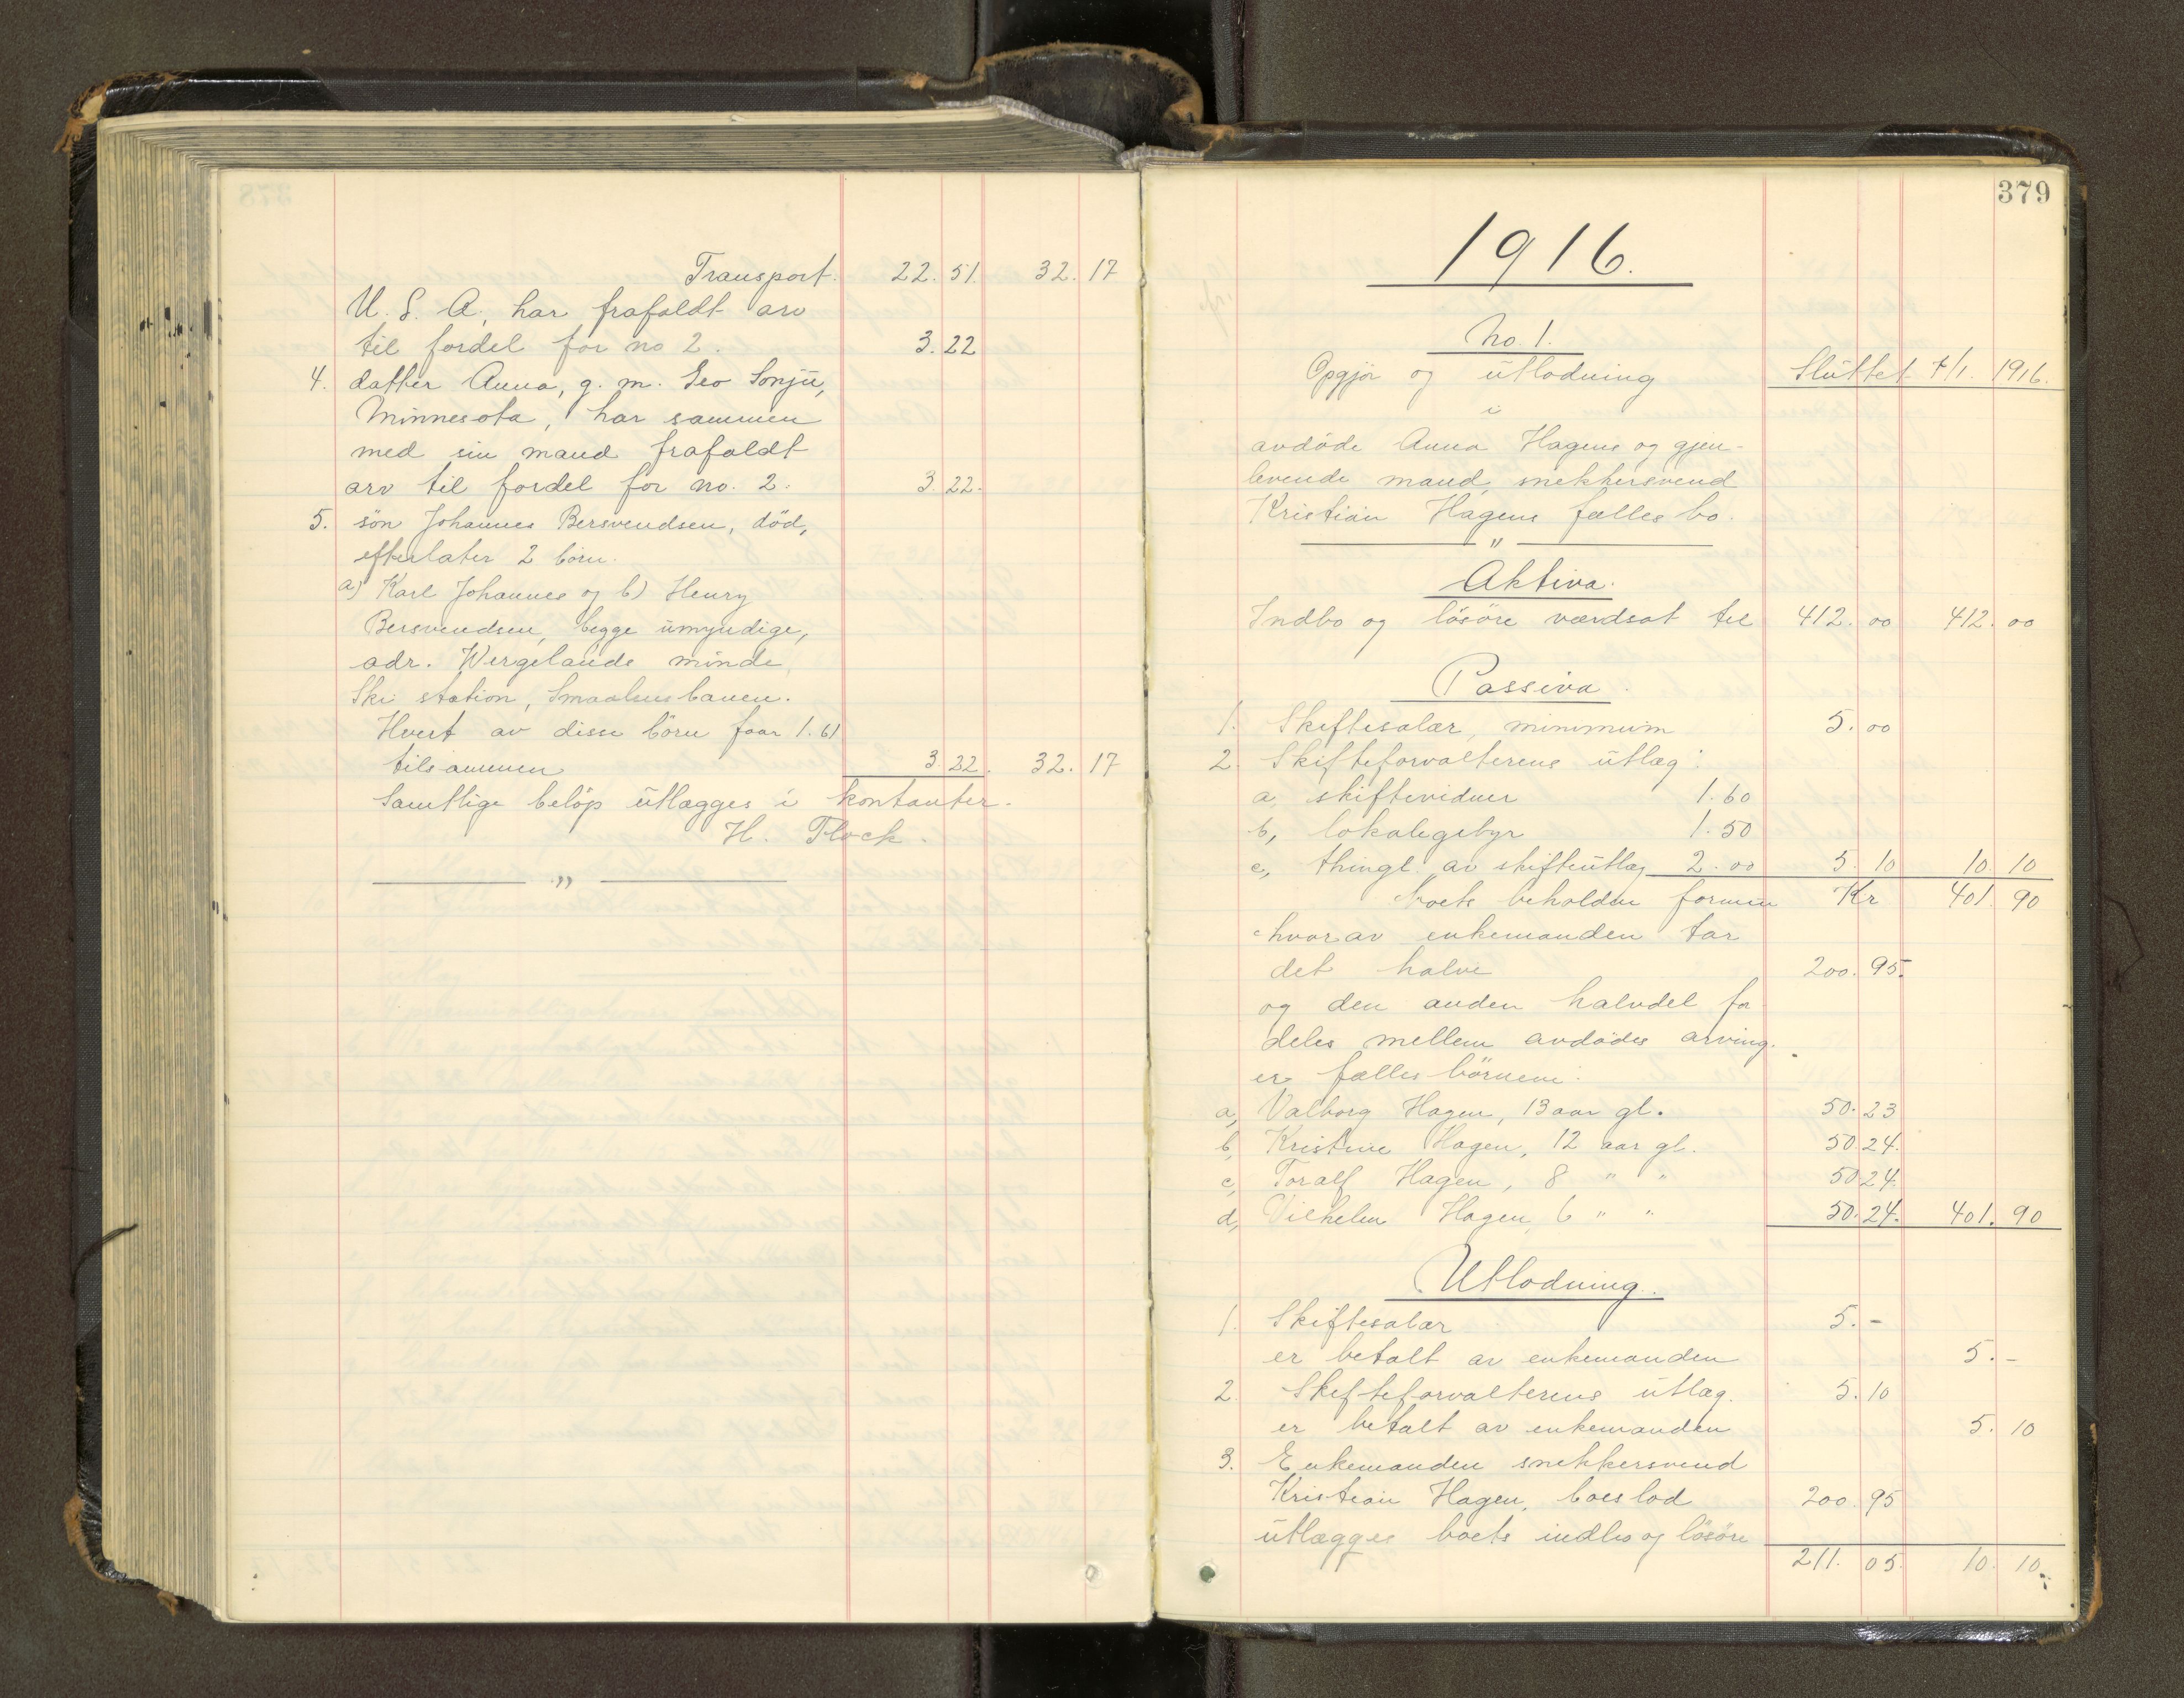 Transport. 22. 51. 32. 17
U. S. A., har frafaldt arv
til fordel for no 2. 3. 22
4. datter Anna, g. m. Geo Sonju,
Minnesota, har sammen
med sin mand frafaldt
arv til fordel for no. 2. 3. 22.
5. sön Johannes Bersvendsen, död,
efterlater 2 börn.
a) Karl Johannes og b) Henry
Bersvendsen, begge umyndige,
adr. Wergelands minde,
Ski station, Smaalensbanen.
Hvert av disse börn faar 1.61
tilsammen 3. 22. 32. 17
Samtlige belöp utlægges i kontanter.
H. Flock.
"
379
1916.
No. 1.
Opgjör og utlodning Sluttet 7/1. 1916.
i
avdöde Anna Hagens og gjen-
levende mand, snekkersvend
Kristian Hagens fælles bo.
"
Aktiva.
Indbo og lösöre værdsat til 412. 00 412. 00
Passiva.
1. Skiftesalær, minimum 5. 00
2. Skifteforvalterens utlæg:
a, skiftevidner 1. 60
b, lokalegebyr 1. 50
c, thingl. av skifteutlæg 2. 00 5. 10 10 10
Boets beholdne formue Kr 401. 90
hvorav enkemanden tar
det halve 200. 95.
og den anden halvdel for
deles mellem avdödes arving.
er fælles börnene:
a, Valborg Hagen, 13 aar gl. 50. 23
b, Kristine Hagen, 12 aar gl. 50. 24.
c, Toralf Hagen, 8 " " 50 24.
d, Vilhelm Hagen, 6 " " 50. 24. 401. 90
Utlodning.
1. Skiftesalær 5. -
er betalt av enkemanden 5. -
2. Skifteforvalterens utlæg. 5. 10
er betalt av enkemanden 5. 10
3. Enkemanden snekkersvend
Kristian Hagen, boeslod 200. 95
utlægges boets indbo og lösöre
211. 05. 10. 10.